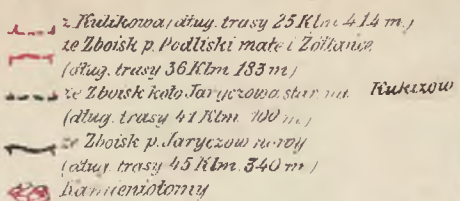 z Kulikowa (dług. trasy 25 Klm 414 m.)
ze Zboisk p. Podliski małe i Żółtańce
(dług. trasy 36 Klm. 183 m)
ze Zboisk koło Jaryczowa star. na Kukizów
(dług. trasy 41 Klm. 100 m.)
ze Zboisk p. Jaryczow nowy
(dług. trasy 45 Klm. 340 m)
kamieniołomy